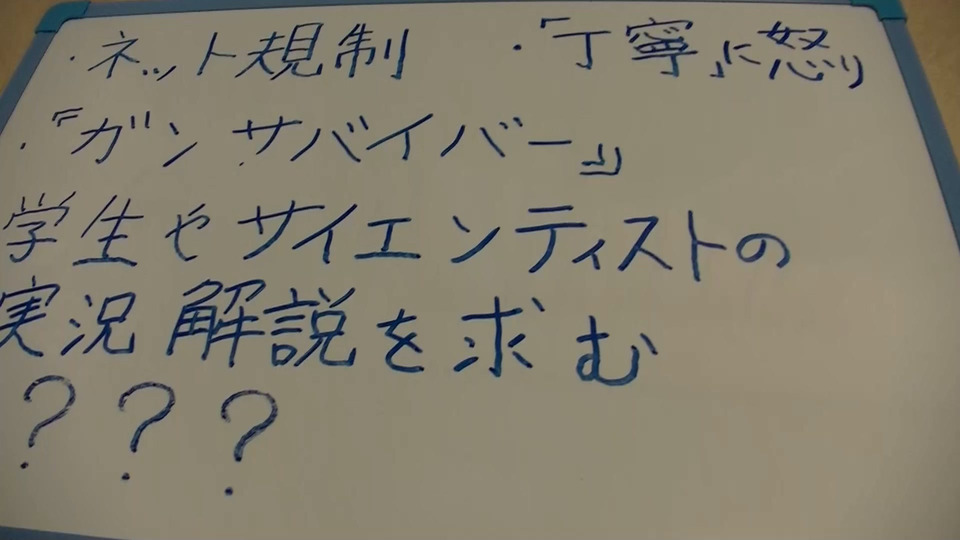 ・ネット規制 ・「丁寧」に怒り
・『ガン サバイバー』
学生やサイエンティストの
実況解説を求む
???